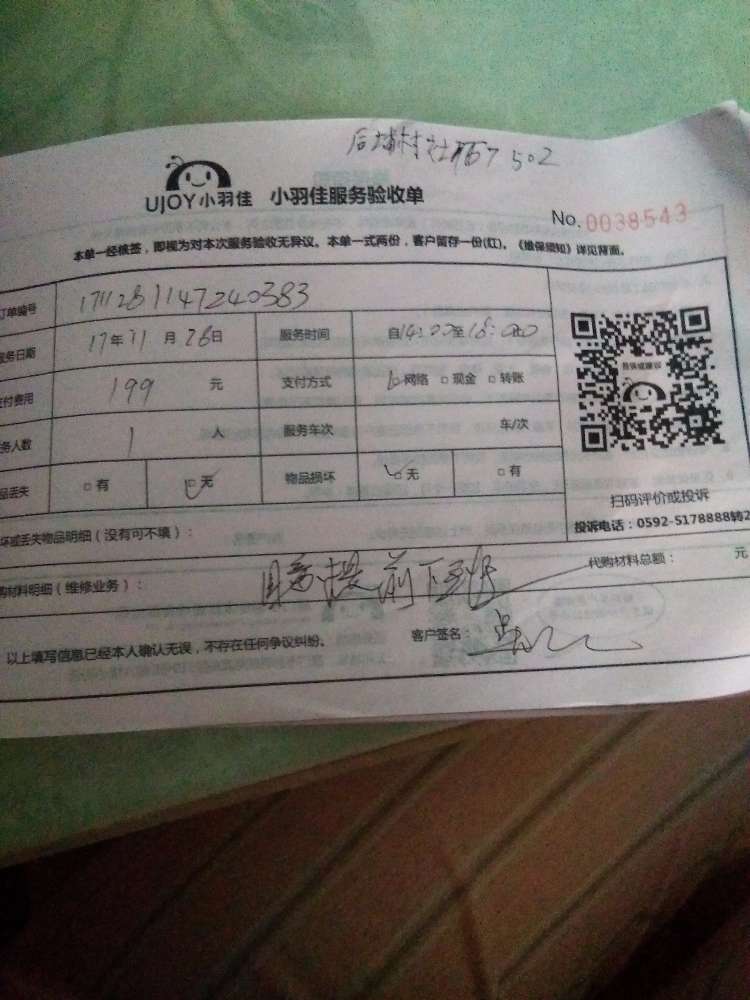 后埔村社 502
UJOY小羽佳 小羽佳服务验收单
No. 0038543
本单一经核签，即视为对本次服务验收无异议。本单一式两份，客户留存一份(红)。《维保须知》详见背面。
订单编号 1711281147240383
服务日期 17年11月26日 服务时间 自14:00至18:00
支付费用 199 元 支付方式 □网络 □现金 □转账
务人数 1 人 服务车次 车/次
品丢失 □有 □无 物品损坏 □无 □有
扫码评价或投诉
投诉电话：0592-5178888转2
坏或丢失物品明细（没有可不填）：
购材料明细（维修业务）： 提前下班 代购材料总额： 元
以上填写信息已经本人确认无误，不存在任何争议纠纷。 客户签名：